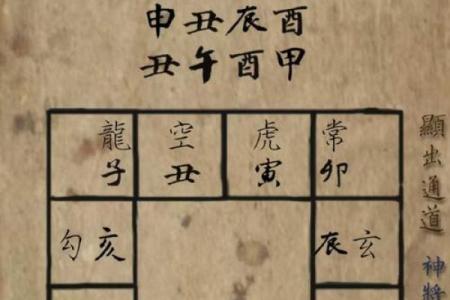 申丑辰酉
丑午酉甲
龍 空 虎 常
子 丑 寅 卯
勾亥 辰玄
顯出通道
神將